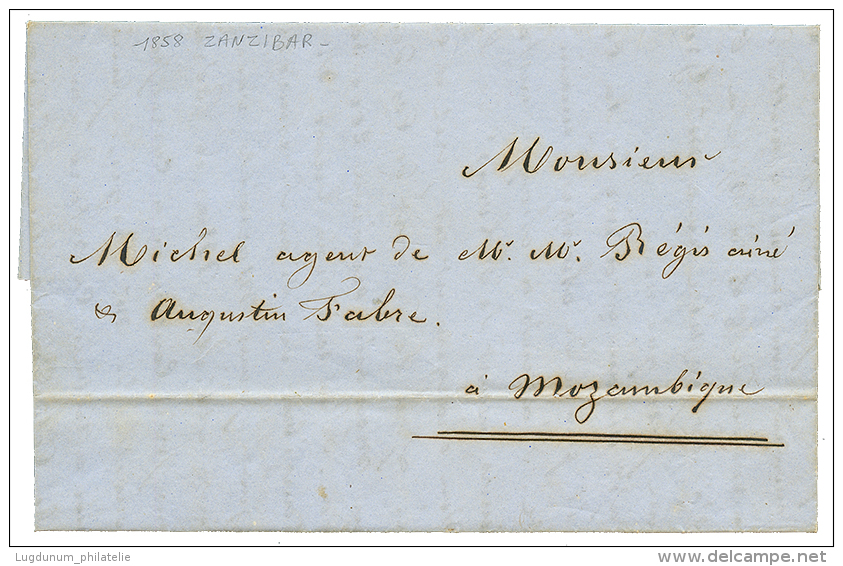 1858 ZANZIBAR -
Monsieur
Michel agent de Mr. Mr. Régis ainé
& Augustin Fabre.
à Mozambique
Lugdunum_philatelie
delcampe.net